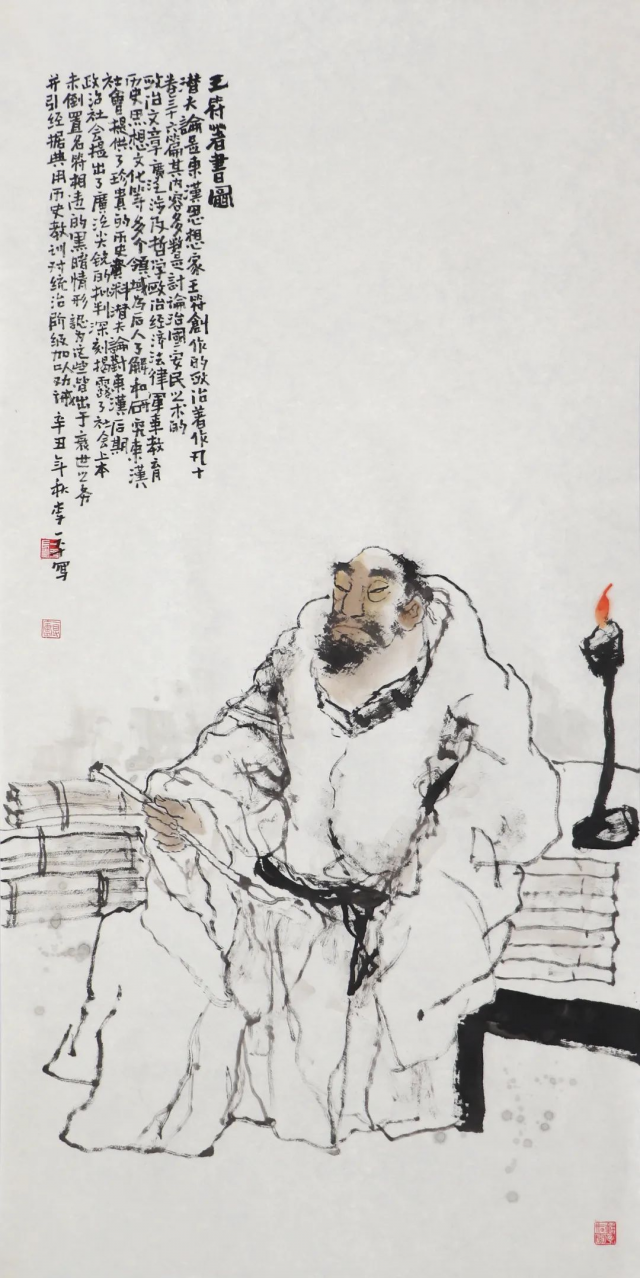 王符著書圖
潛夫論是東漢思想家王符創作的政治著作凡十
卷三十六篇其内容多數是討論治國安民之术的
政治文章廣泛涉及哲学政治经济法律軍事教育
历史思想文化等多个領域為后人了解和研究東漢
社會提供了珍貴的历史資料潛夫論對東漢后期
政治社会提出了廣泛尖锐的批判深刻揭露了社会上本
末倒置名相違的黑暗情形認为这些皆出于衰世之务
并引经据典用历史教训对统治阶级加以劝诫 辛丑年秋李一写